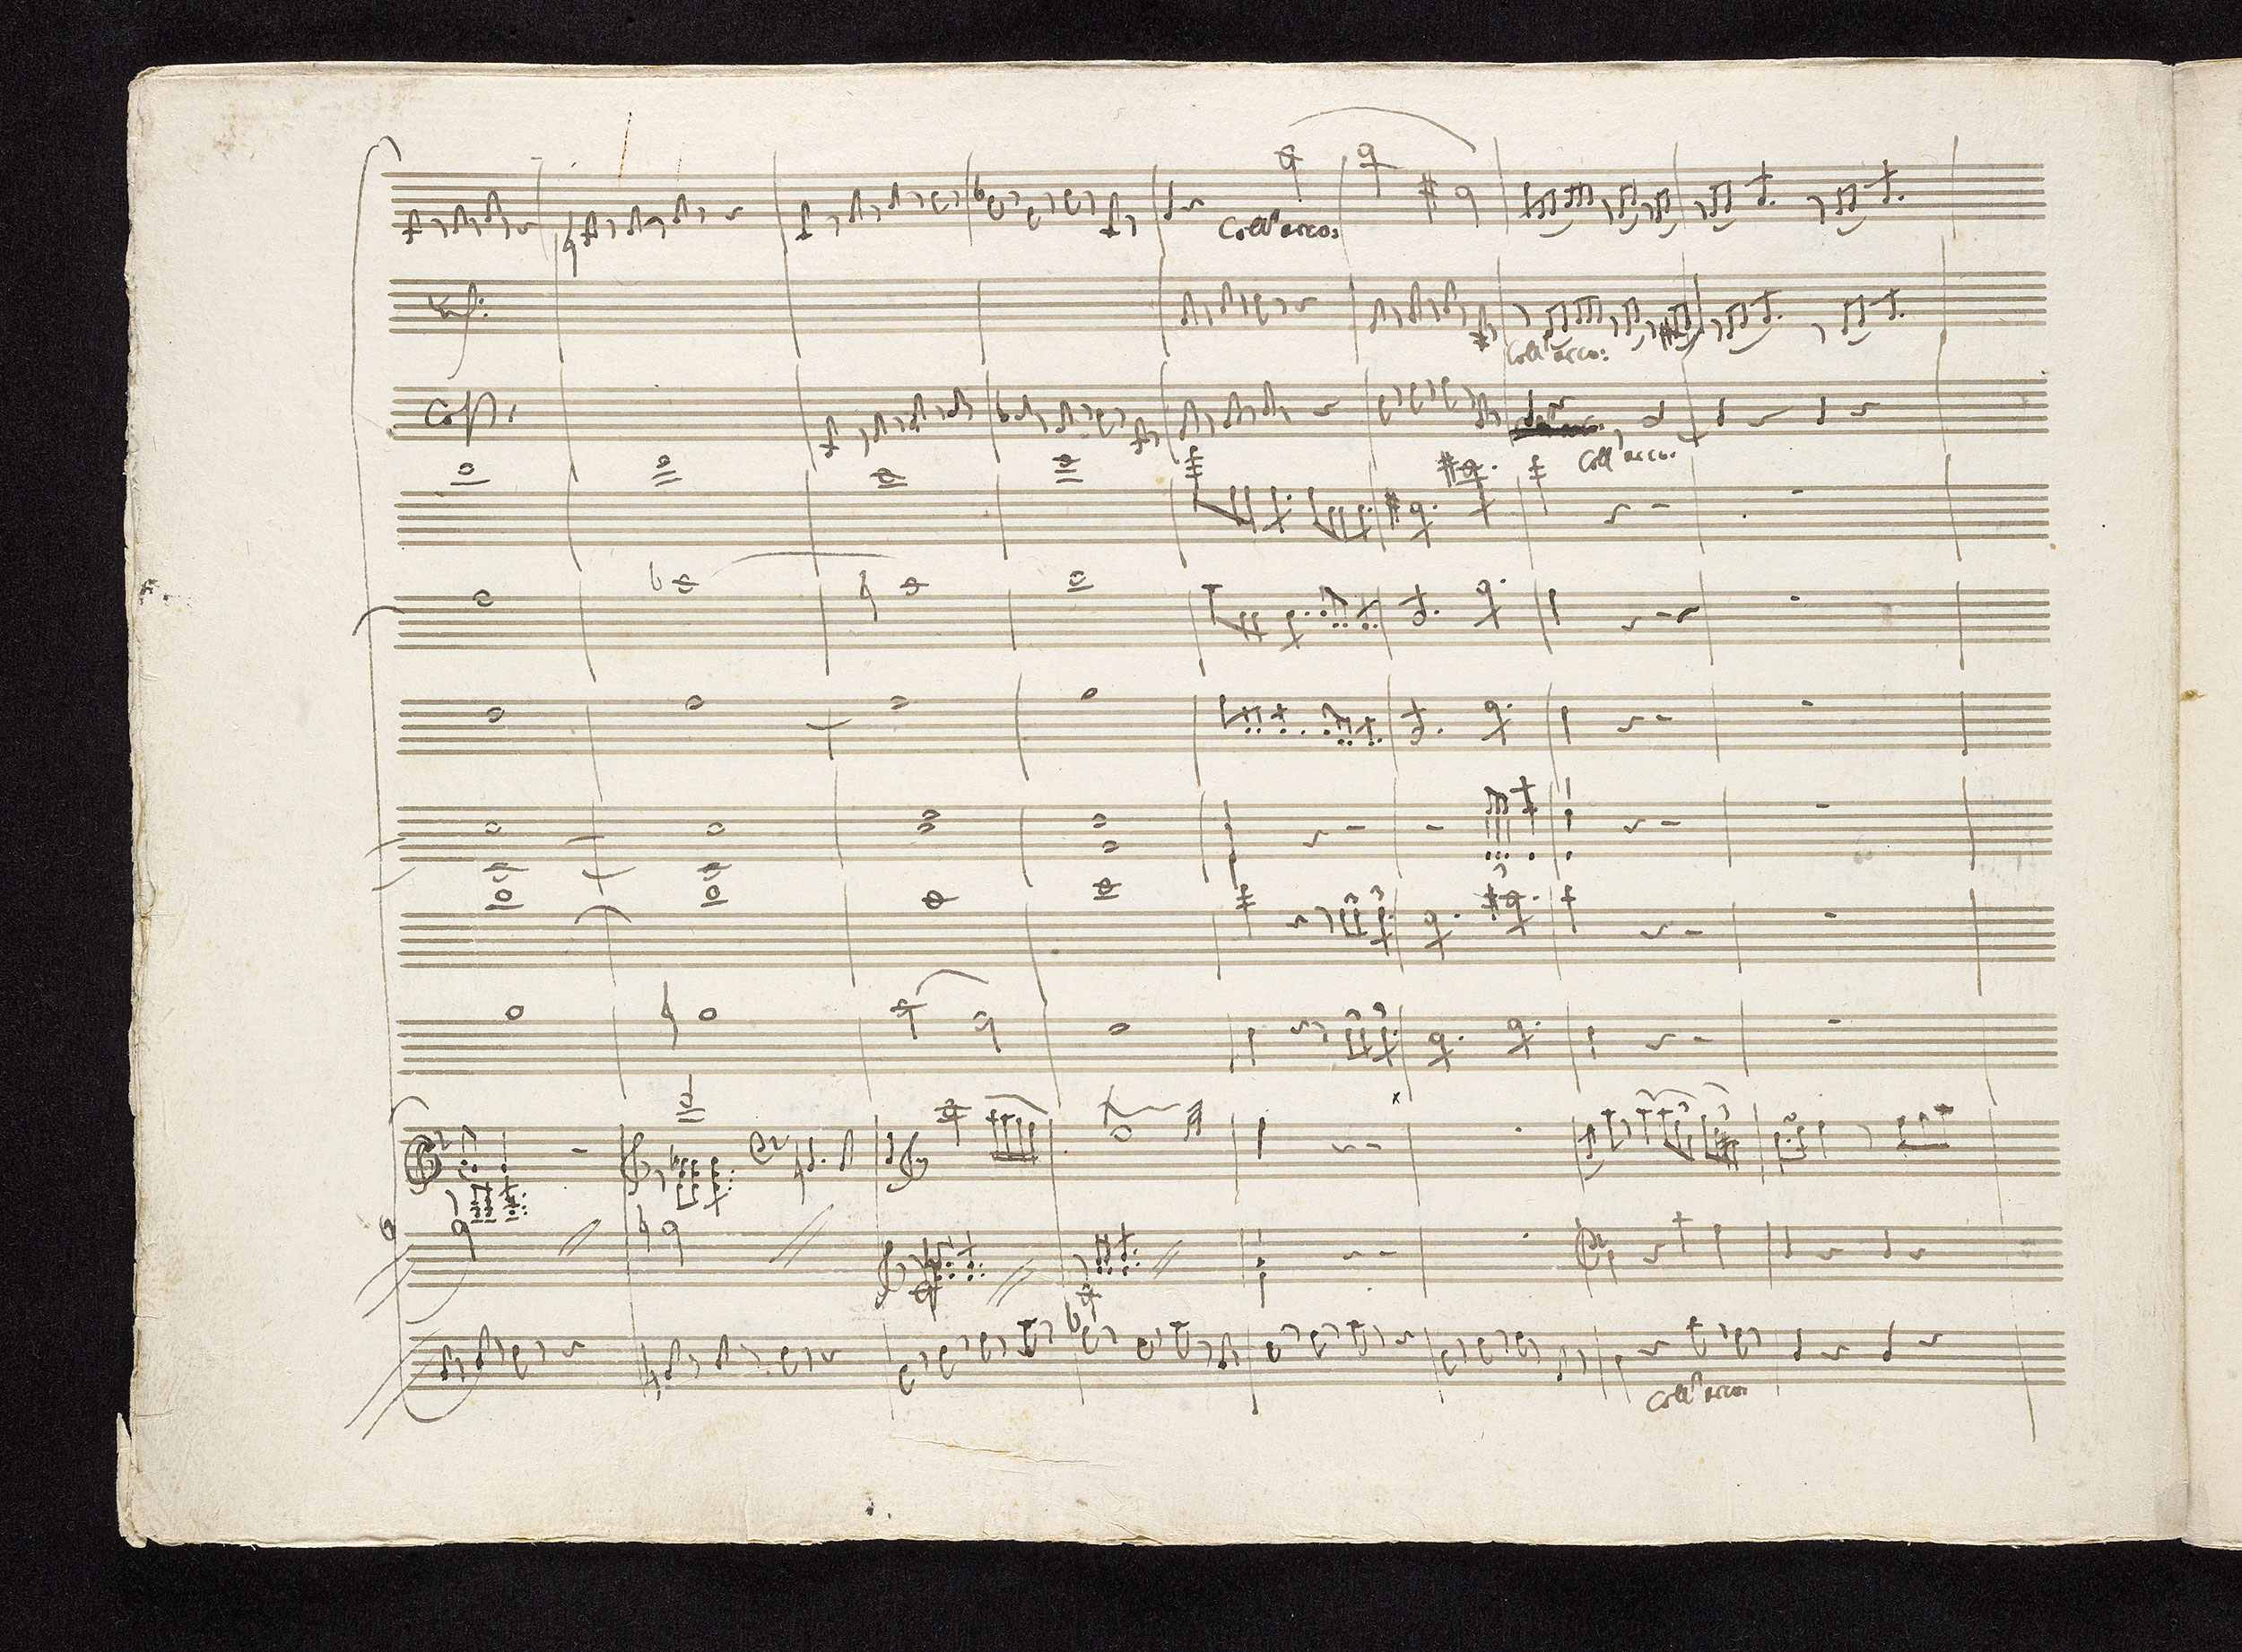 Coll'arco:
Unis:
Coll'arco:
Cop.
Coll'arco:
Coll'arco